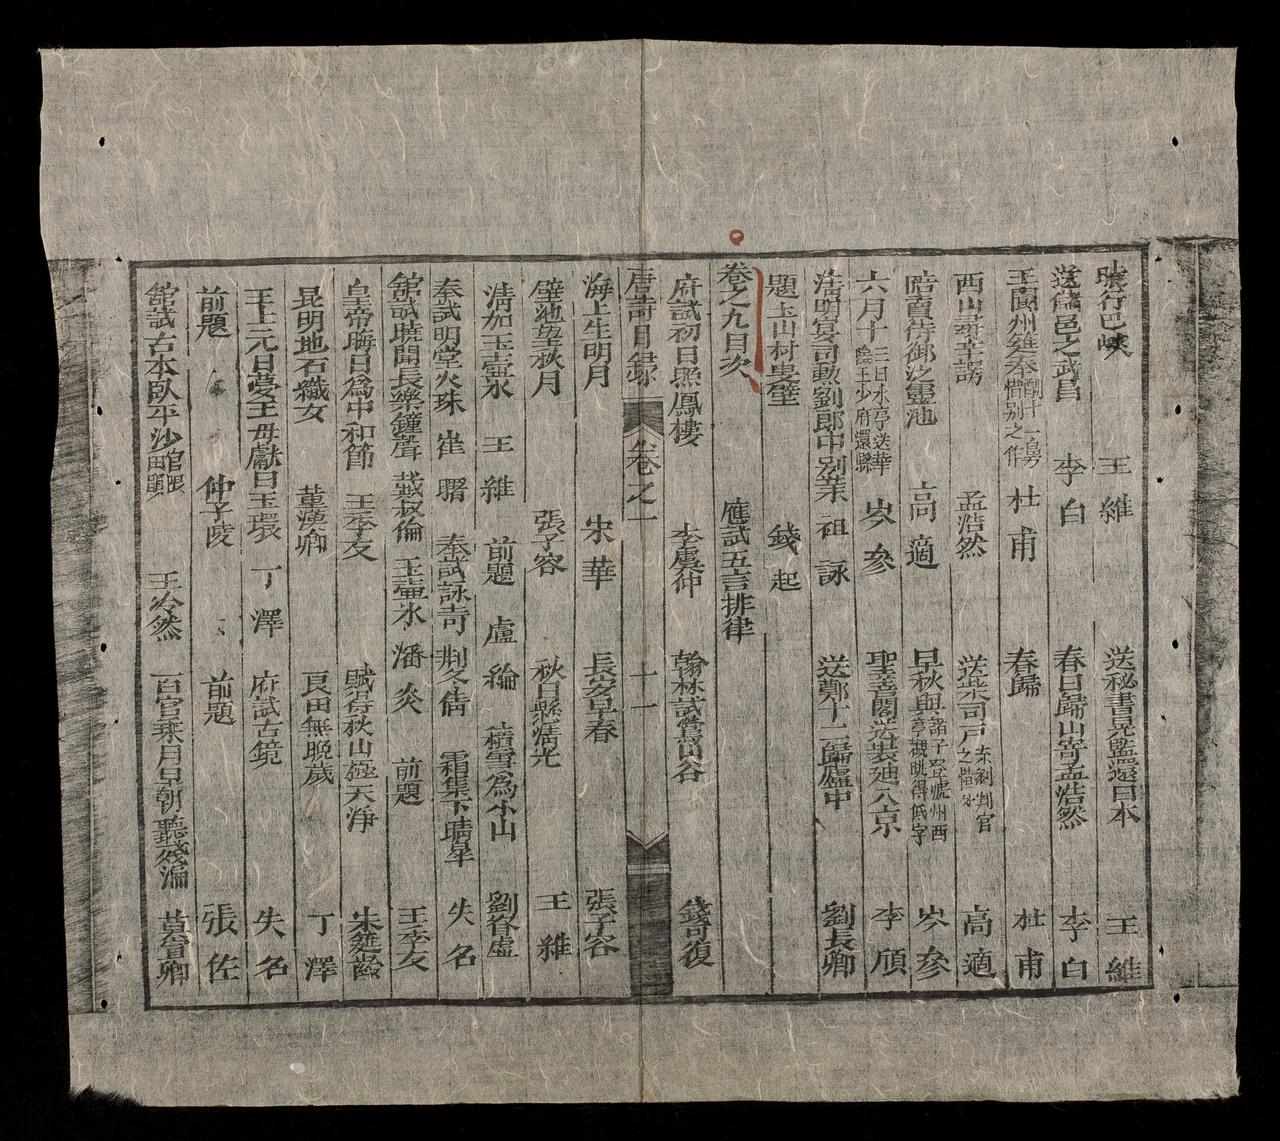 曉行巴峽 王維 送秘書晁監還日本 王維
送儲邕之武昌 李白 春日歸山寄孟浩然 李白
王閬州筵奉酬十一舅惜別之作 杜甫 春歸 杜甫
西山尋辛諤 孟浩然 送柴司戶充劉判官之嶺外 高適
陪竇侍御泛靈池 高適 早秋與諸子登虢州西亭觀眺得低字 岑參
六月十三日水亭送華陰王少府還縣 岑參 聖善閣送裴廸入京 李頎
清明宴司勲劉郎中別業 祖詠 送鄭十二歸廬山 劉長卿
題玉山村叟壁 錢起
卷之九目次 應試五言排律
府試初日照鳳樓 李虞仲 翰林試鶯出谷 錢可復
唐詩目錄 卷之一 十一
海上生明月 朱華 長安早春 張子容
璧池望秋月 張子容 秋日懸清光 王維
清如玉壺冰 王維 前題 盧綸 積雪為小山 劉眘虛
奏試明堂火珠 崔曙 奏試詠青 荊冬倩 霜隼下晴皐 失名
舘試曉聞長樂鐘聲 戴叔倫 玉壺冰 潘炎 前題 王季友
皇帝晦日為中和節 王季友 賦得秋山極天淨 朱延齡
昆明池石織女 童漢卿 良田無晚歲 丁澤
上元日夢王母獻白玉環 丁澤 府試古鏡 失名
前題 仲子陵 前題 張佐
舘試古木臥平沙 王泠然 百官乘月早朝聽殘漏 莫宣卿